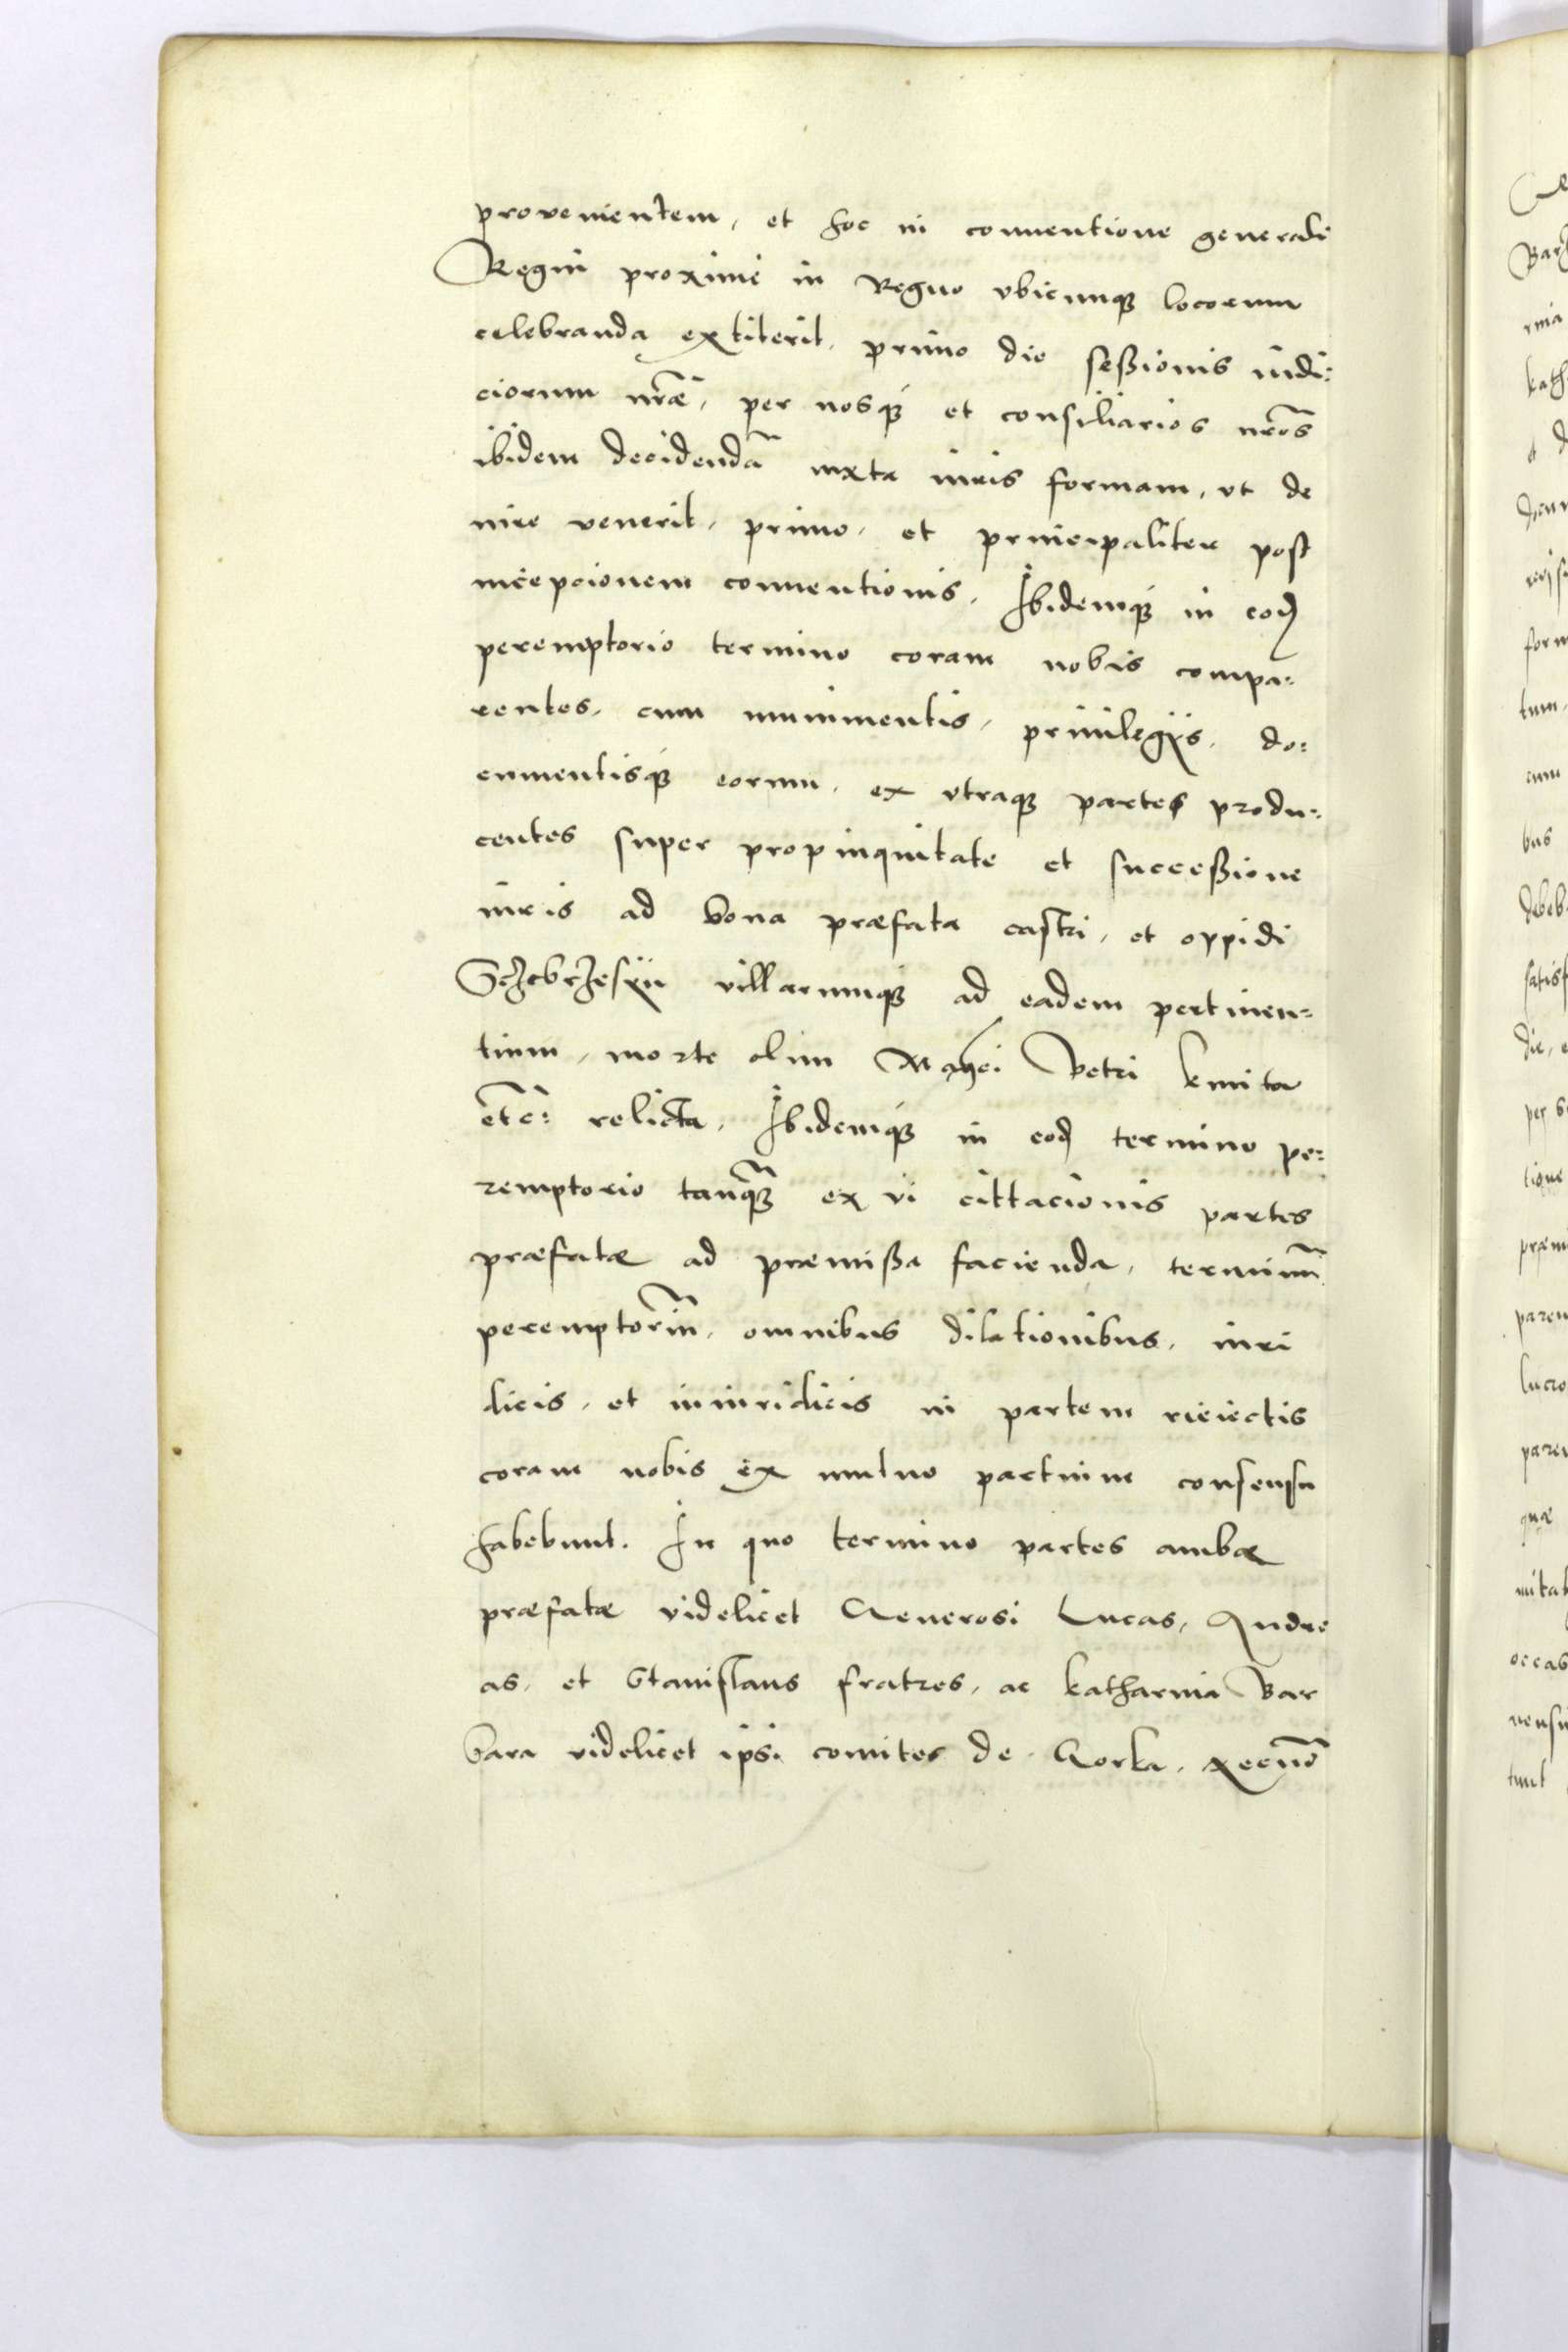 provenientem, et hoc in conventione generali
Regni proxime in Regno vbicunq locorum
celebranda extiterit, primo die seßionis iudi:
ciorum nr̃æ, per nosq et consiliarios nr̃os
ibidem decidendã iuxta iuris formam, vt de
iure venerit, primo, et principaliter post
incepcionem conventionis. Ibidemq in eod
peremptorio termino coram nobis compa:
rentes, cum munimentis, privilegijs, do:
cumentisq eorum, ex vtraq partes produ:
centes super propinquitate et succeßione
iuris ad bona præfata castri, et oppidi
Sczebrzesyn villarumq ad eadem pertinen:
tium, morte olim Petri kmita
etc̃: relicta. Ibidemq in eod termino pe:
remptorio tanq̃ ex vi cittacionis partes
præfatæ ad præmißa facienda, terminũ
peremptoriũ, omnibus dilationibus, iuri
dicis, et iniuridicis in partem rieiectis
coram nobis ex mutuo partium consensu
habebunt. In quo termino partes ambæ
præfatæ videlicet Generosi Lucas, Andre
as, et Stanislaus fratres, ac katharina Bar
bara videlicet ipsi comites de Gorka,
Bar
rnia
kath
form
tum,
cum
bus
debeb
satisf
die, e
per
tione
præm
paren
lucro
paren
quæ
occas